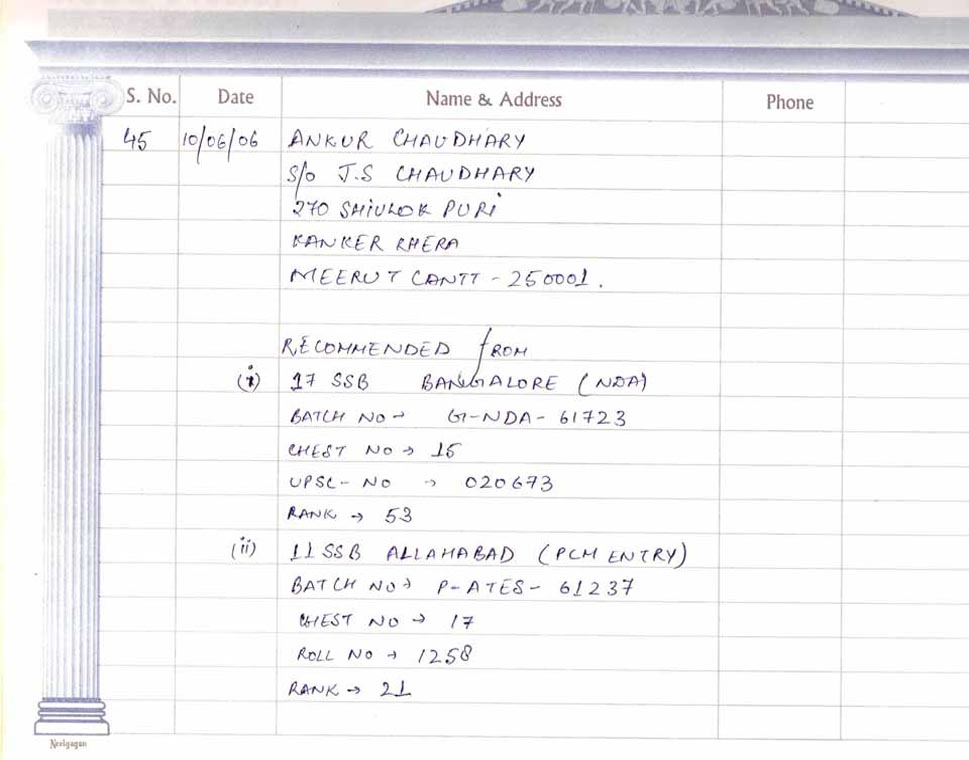 S. No. Date Name & Address Phone
45 10/06/06 ANKUR CHAUDHARY
S/o J.S CHAUDHARY
270 SHIVLOK PURI
KANKER KHERA
MEERUT CANTT - 250001.
RECOMMENDED from
(i) 17 SSB BANGALORE (NDA)
BATCH NO → G-NDA- 61723
CHEST NO → 15
UPSC- NO → 020673
RANK → 53
(ii) 11 SSB ALLAHABAD (PCM ENTRY)
BATCH NO → P-ATES- 61237
CHEST NO → 17
ROLL NO → 1258
RANK → 21
Neelgagan